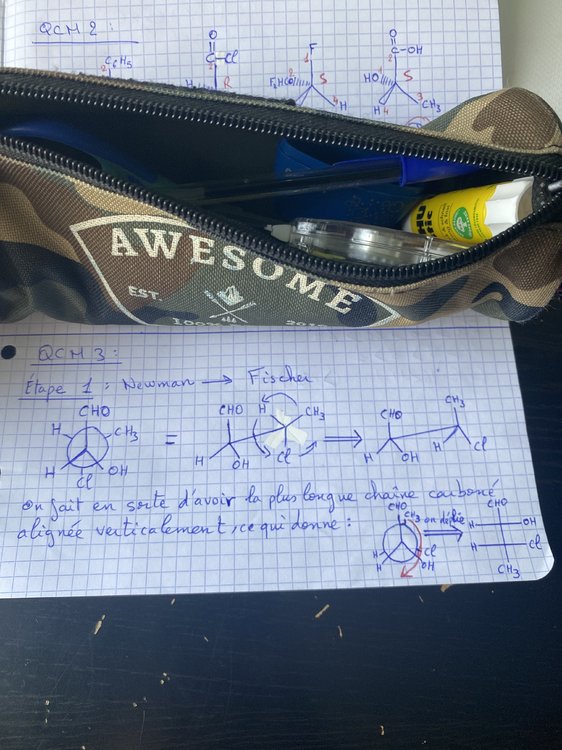 QCM 2 :
C6H5
2
O
C-Cl
2
R
F
1
2
S
4
H
O
C-OH
2
HO
1
S
3
CH3
H
4
AWESOME
EST.
QCM 3 :
Étape 1 : Newman → Fischer
CHO
H
CH3
H
OH
Cl
=
CHO
H
CH3
H
OH
Cl
⇒
CHO
CH3
H
OH
H
Cl
on fait en sorte d'avoir la plus longue chaîne carboné
alignée verticalement, ce qui donne :
CHO
CH3
H
Cl
H
OH
on déplie
CHO
H
OH
H
Cl
CH3